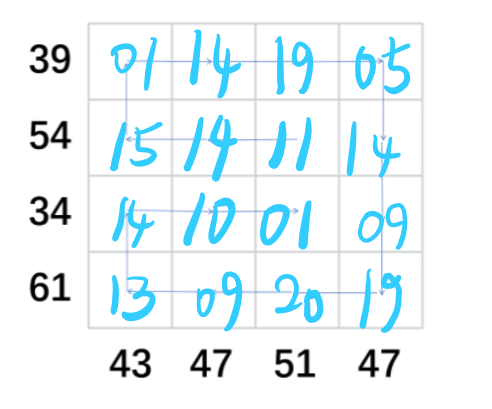 39 01 14 19 05
54 15 14 11 14
34 14 10 01 09
61 13 09 20 19
43 47 51 47